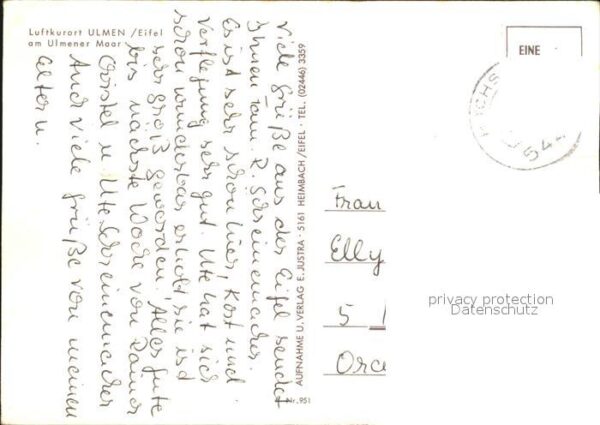 Luftkurort ULMEN /Eifel
am Ulmener Maar
Viele Grüße aus der Eifel sendet
Ihnen Fam. R. Schreinemacher.
Es ist sehr schön hier, Kost und
Verpflegung sehr gut. Ute hat sich
schon wunderbar erholt, sie ist
sehr groß geworden. Alles Gute
bis nächste Woche von Rainer
Christel u Ute Schreinemacher
Auch viele Grüße von meinen
Eltern.
AUFNAHME U. VERLAG E. JUSTRA · 5161 HEIMBACH/EIFEL · TEL. (02446) 3359
Nr. 951
EINE
544
Frau
Elly
5
privacy protection
Datenschutz